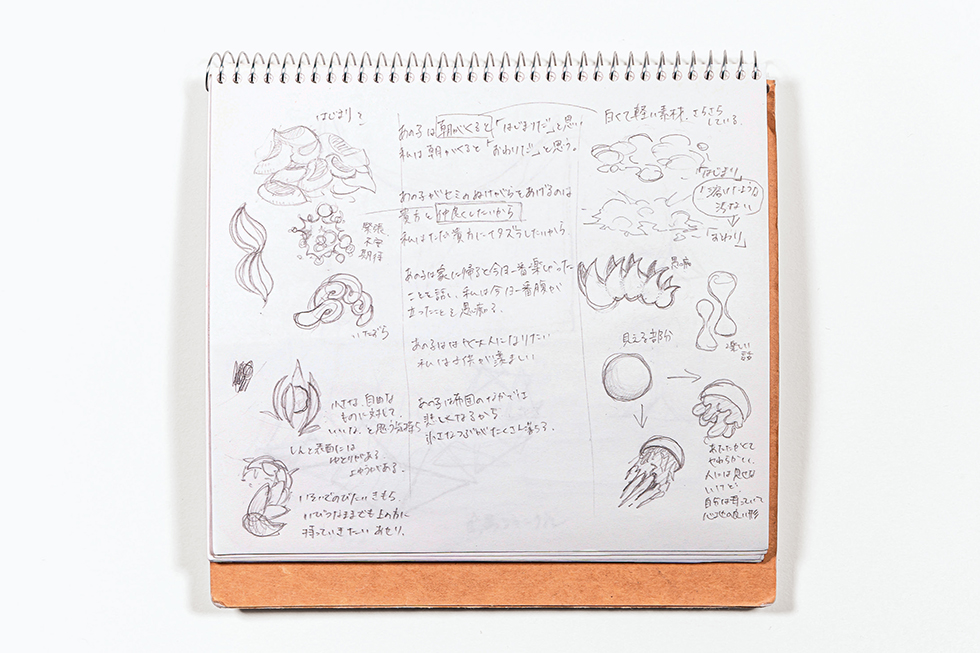 はじまり?
緊張
不安
期待
いたずら
小さな、自由な
ものに対して、
いいな、と思う気持ち
しんと表面には
ゆとりがある。
いそいでのびたいきもち
いびつなままでも上の方に
持っていきたい あせり。
あの子は朝がくると「はじまりだ」と思い
私は朝がくると「おわりだ」と思う。
あの子がセミのぬけがらをあげるのは
貴方と仲良くしたいから
私はただ貴方にイタズラしたいから。
あの子は家に帰ると今日一番楽しかった
ことを話し、私は今日一番腹が
立ったことを愚痴る。
あの子は早く大人になりたい
私は子供が羨ましい
あの子は布団のなかでは
悲しくなるから
小さなつぶがたくさん落ちる。
白くて軽い素材。さらさら
している。
「はじまり」
溶けたような
汚ない
「おわり」
愚痴
楽しい
話
見える部分
あたたかくて
やわらかい。
人には見せな
いけど
自分は持っていて
心地の良い形